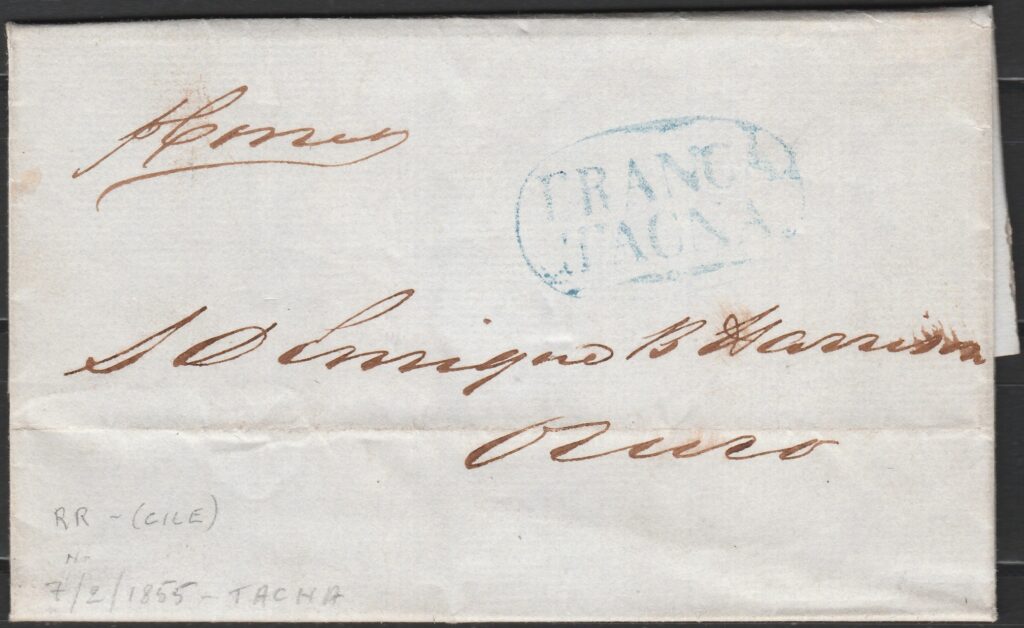 pr Correo
FRANCA
TACNA
S D Enrique B Harrison
Oruro
RR - (CILE)
N-
7/2/1855 - TACNA